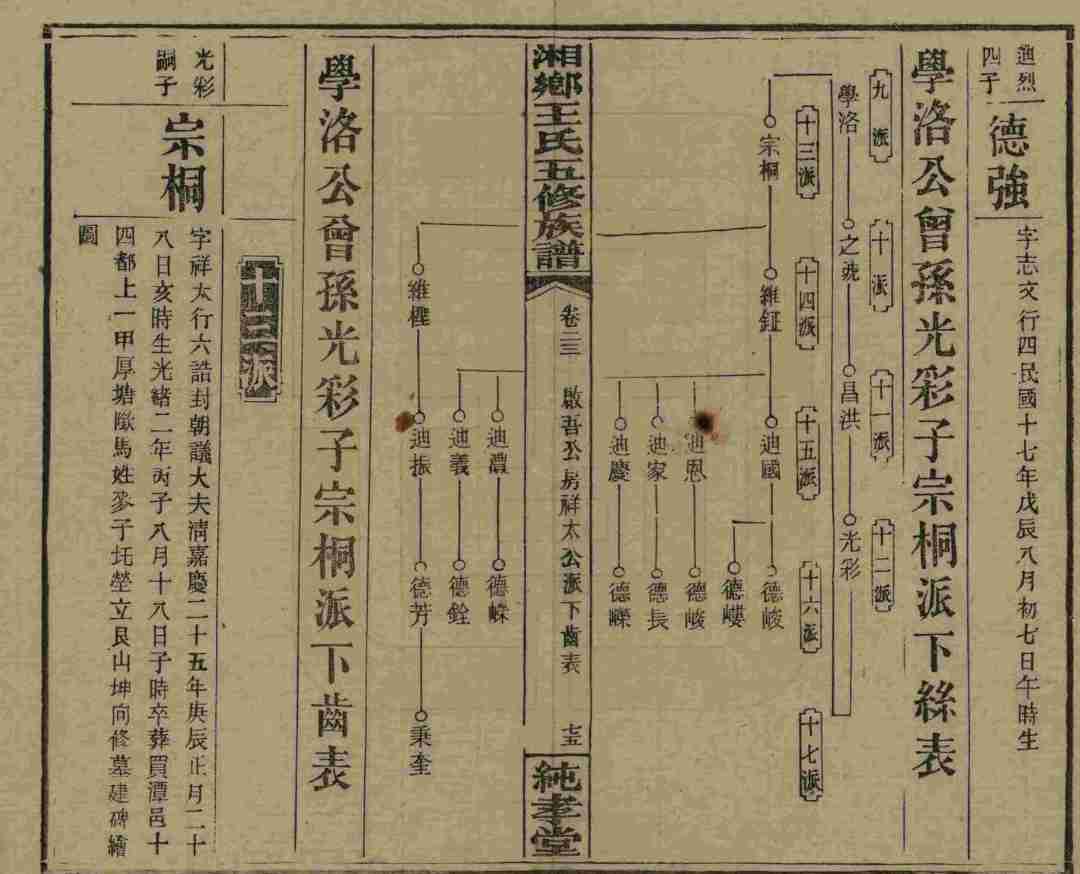 迪烈
四子
德強
字志文行四民國十七年戊辰八月初七日午時生
學洛公曾孫光彩子宗桐派下絲表
九派
十派
十一派
十二派
學洛
之
昌洪
光彩
十三派
十四派
十五派
十六派
十七派
宗桐
維鉦
迪國
德峻
德
迪恩
德峻
迪家
德長
迪慶
德嶸
湘鄉王氏五修族譜
卷二三
啟吾公房祥太公派下齒表
七五
純孝堂
迪澧
德嶸
迪義
德銓
維
迪振
德芳
秉奎
學洛公曾孫光彩子宗桐派下齒表
十三派
光彩
嗣子
宗桐
字祥太行六誥封朝議大夫清嘉慶二十五年庚辰正月二十
八日亥時生光緒二年丙子八月十八日子時卒葬買潭邑十
四都上一甲厚塘馬姓麥子圫塋立艮山坤向修墓建碑繪
圖